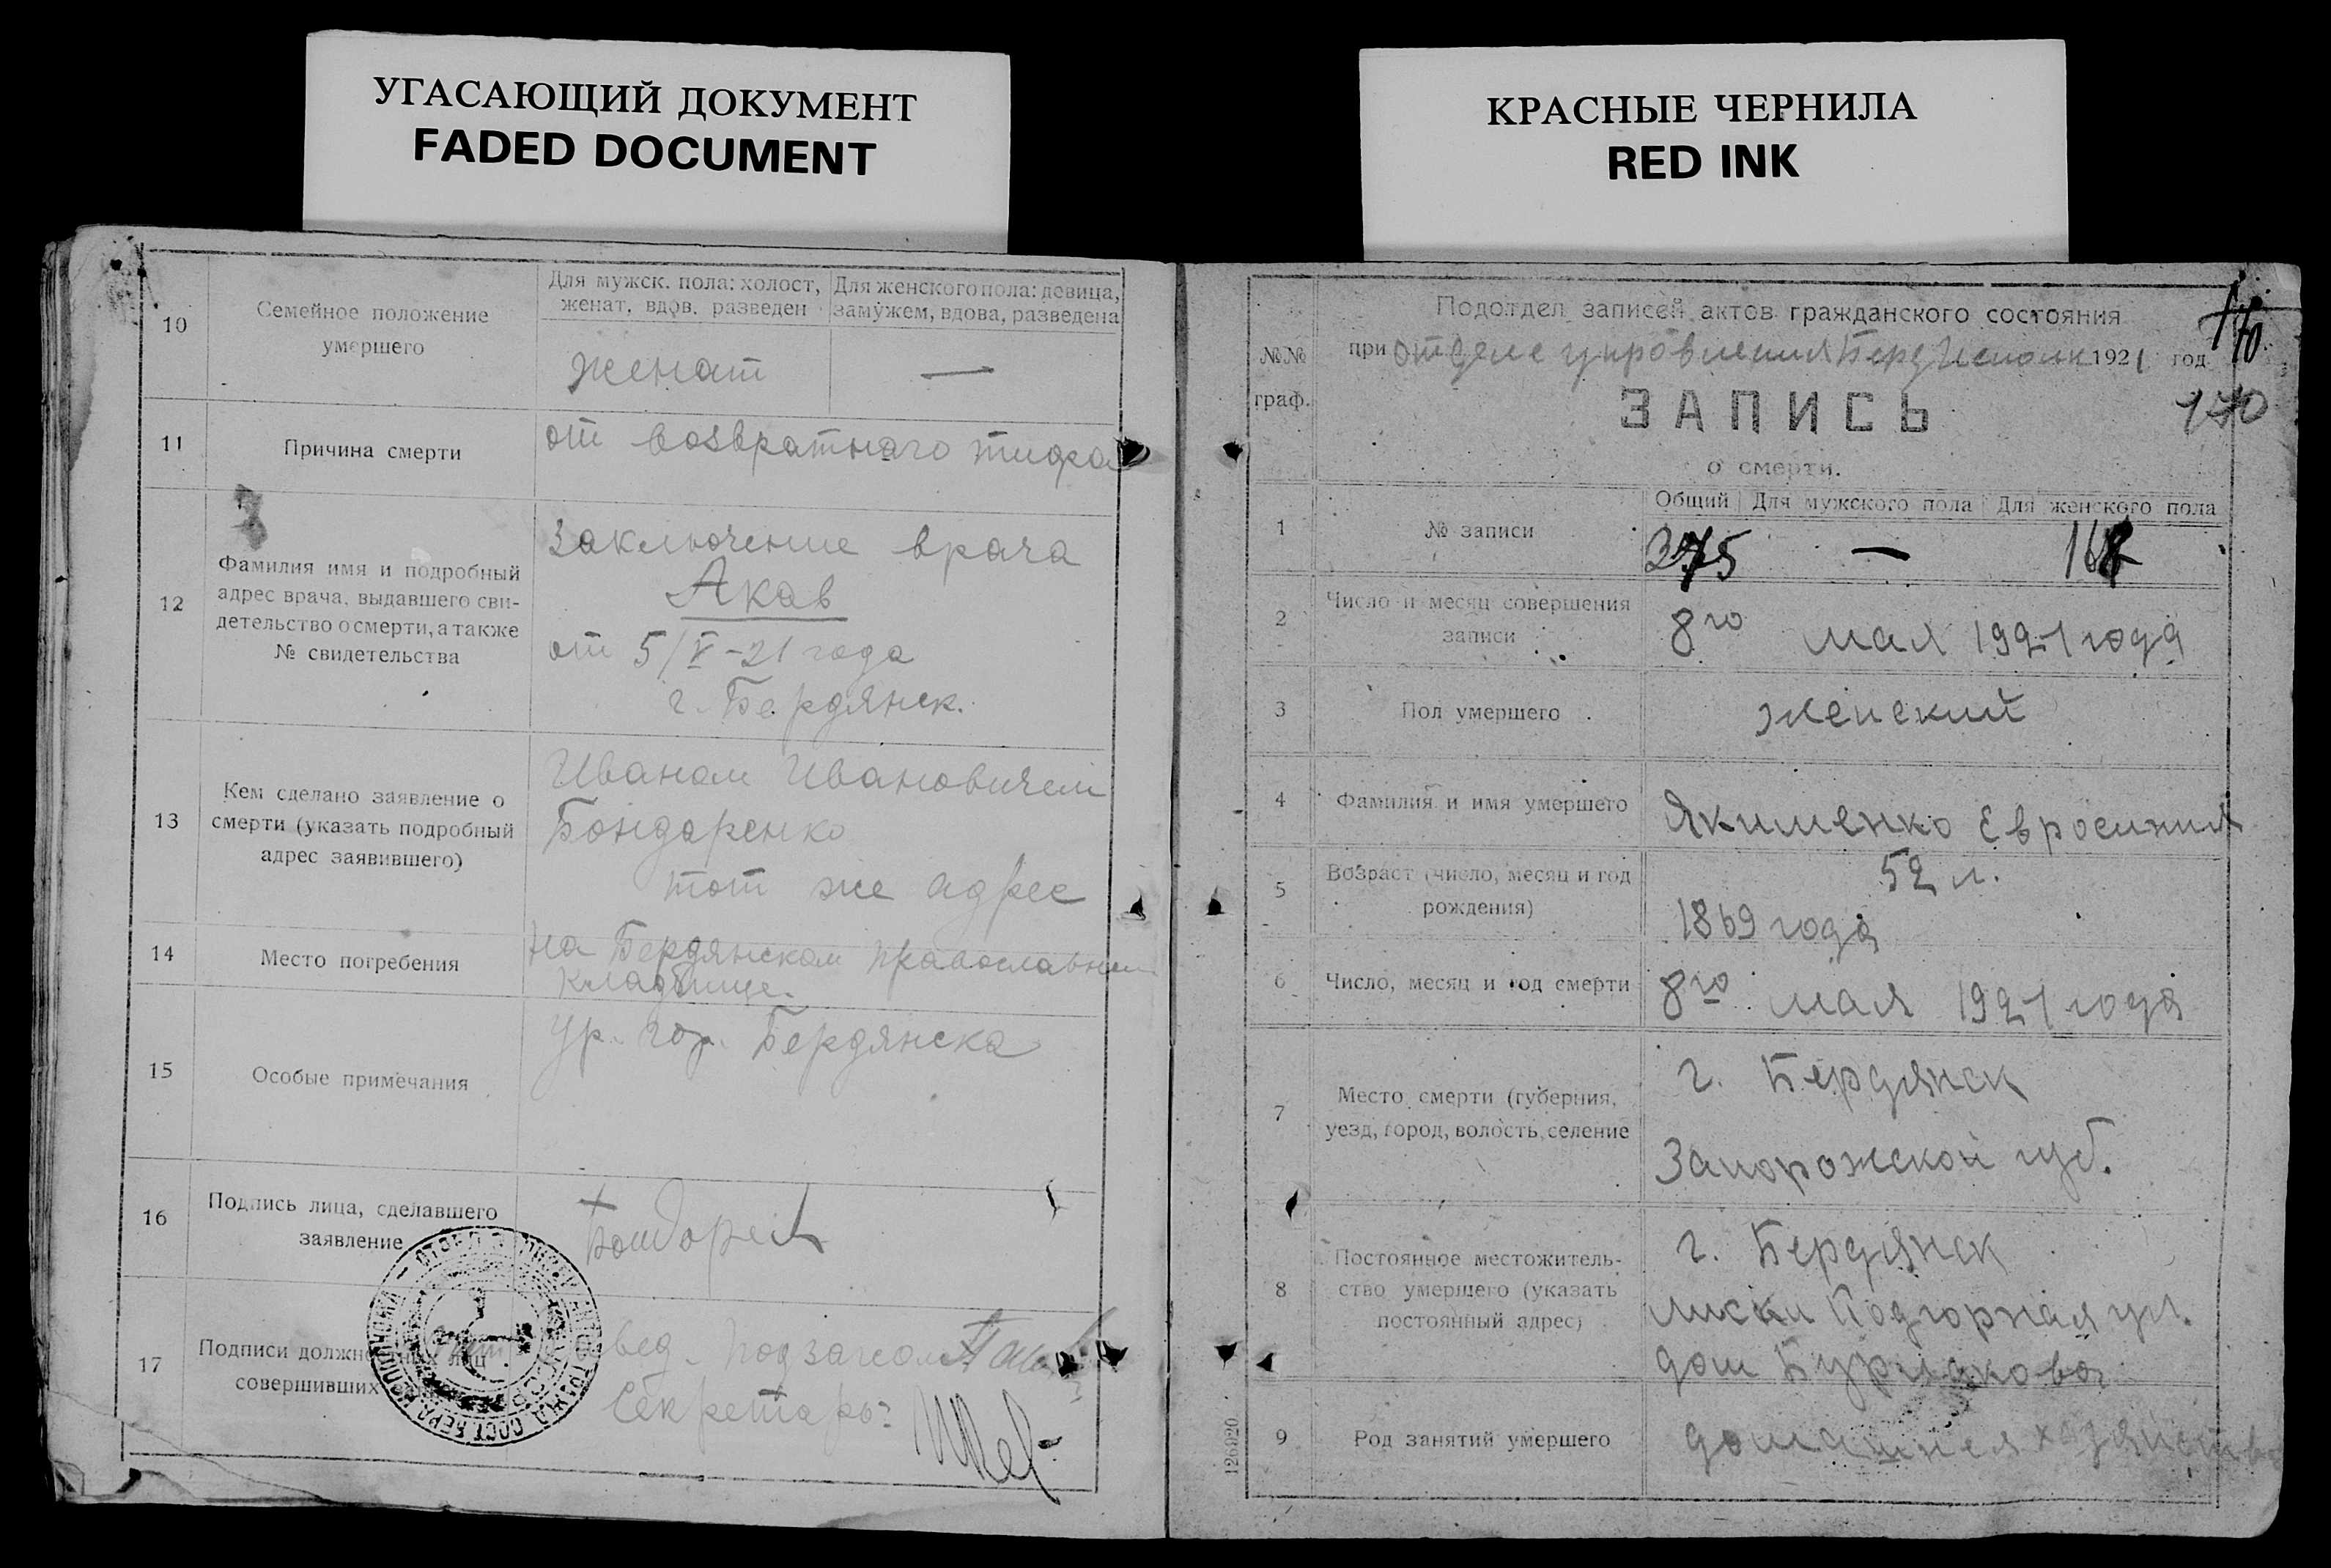 УГАСАЮЩИЙ ДОКУМЕНТ
FADED DOCUMENT
10
Семейное положение
умершего
Для мужск. пола: холост,
женат, вдов, разведен
Для женского пола: девица,
замужем, вдова, разведена
женат
—
11
Причина смерти
от возвратнаго тифа
12
Фамилия имя и подробный
адрес врача, выдавшего сви-
детельство о смерти, а также
№ свидетельства
Заключение врача
Акав
от 5/V-21 года
г. Бердянск.
13
Кем сделано заявление о
смерти (указать подробный
адрес заявившего)
Иваном Ивановичем
Бондаренко
тот же адрес
14
Место погребения
на Бердянском православном
кладбище.
15
Особые примечания
ур. гор. Бердянска
16
Подпись лица, сделавшего
заявление
17
Подписи должностных лиц
совершивших
Секретарь:
КРАСНЫЕ ЧЕРНИЛА
RED INK
№№
граф.
Подотдел записей актов гражданского состояния
при отделе управления Берд Исполк 1921 год.
170
ЗАПИСЬ
о смерти.
1
№ записи
Общий
Для мужского пола
Для женского пола
275
—
168
2
Число и месяц совершения
записи
8го мая 1921 года
3
Пол умершего
женский
4
Фамилия и имя умершего
Якименко Евросиния
5
Возраст (число, месяц и год
рождения)
52 л.
1869 года
6
Число, месяц и год смерти
8го мая 1921 года
7
Место смерти (губерния,
уезд, город, волость, селение
г. Бердянск
Запорожской губ.
8
Постоянное местожитель-
ство умершего (указать
постоянный адрес)
г. Бердянск
лиски Подгорная ул.
дом Бурлакова
9
Род занятий умершего
домашнея хозяйство
126920